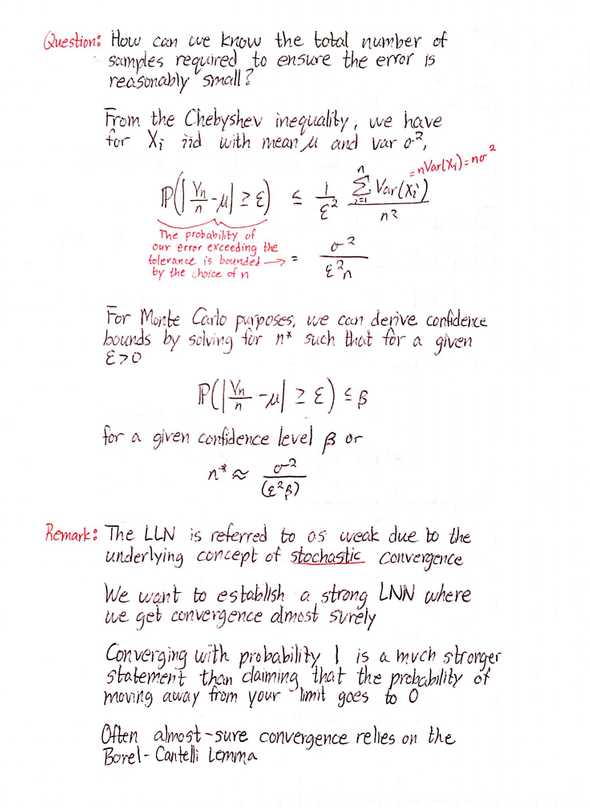 Question: How can we know the total number of
samples required to ensure the error is
reasonably small?
From the Chebyshev inequality, we have
for Xᵢ iid with mean μ and var σ²,
ℙ(|Yₙ/n - μ| ≥ ε) ≤ 1/ε² ∑ᵢ₌₁ⁿ Var(Xᵢ)/n²
= nVar(Xᵢ) = nσ²
The probability of
our error exceeding the
tolerance is bounded →
by the choice of n
= σ²/ε²n
For Monte Carlo purposes, we can derive confidence
bounds by solving for n* such that for a given
ε>0
ℙ(|Yₙ/n - μ| ≥ ε) ≤ β
for a given confidence level β or
n* ≈ σ²/(ε²β)
Remark: The LLN is referred to as weak due to the
underlying concept of stochastic convergence
We want to establish a strong LNN where
we get convergence almost surely
Converging with probability 1 is a much stronger
statement than claiming that the probability of
moving away from your limit goes to 0
Often almost-sure convergence relies on the
Borel-Cantelli Lemma